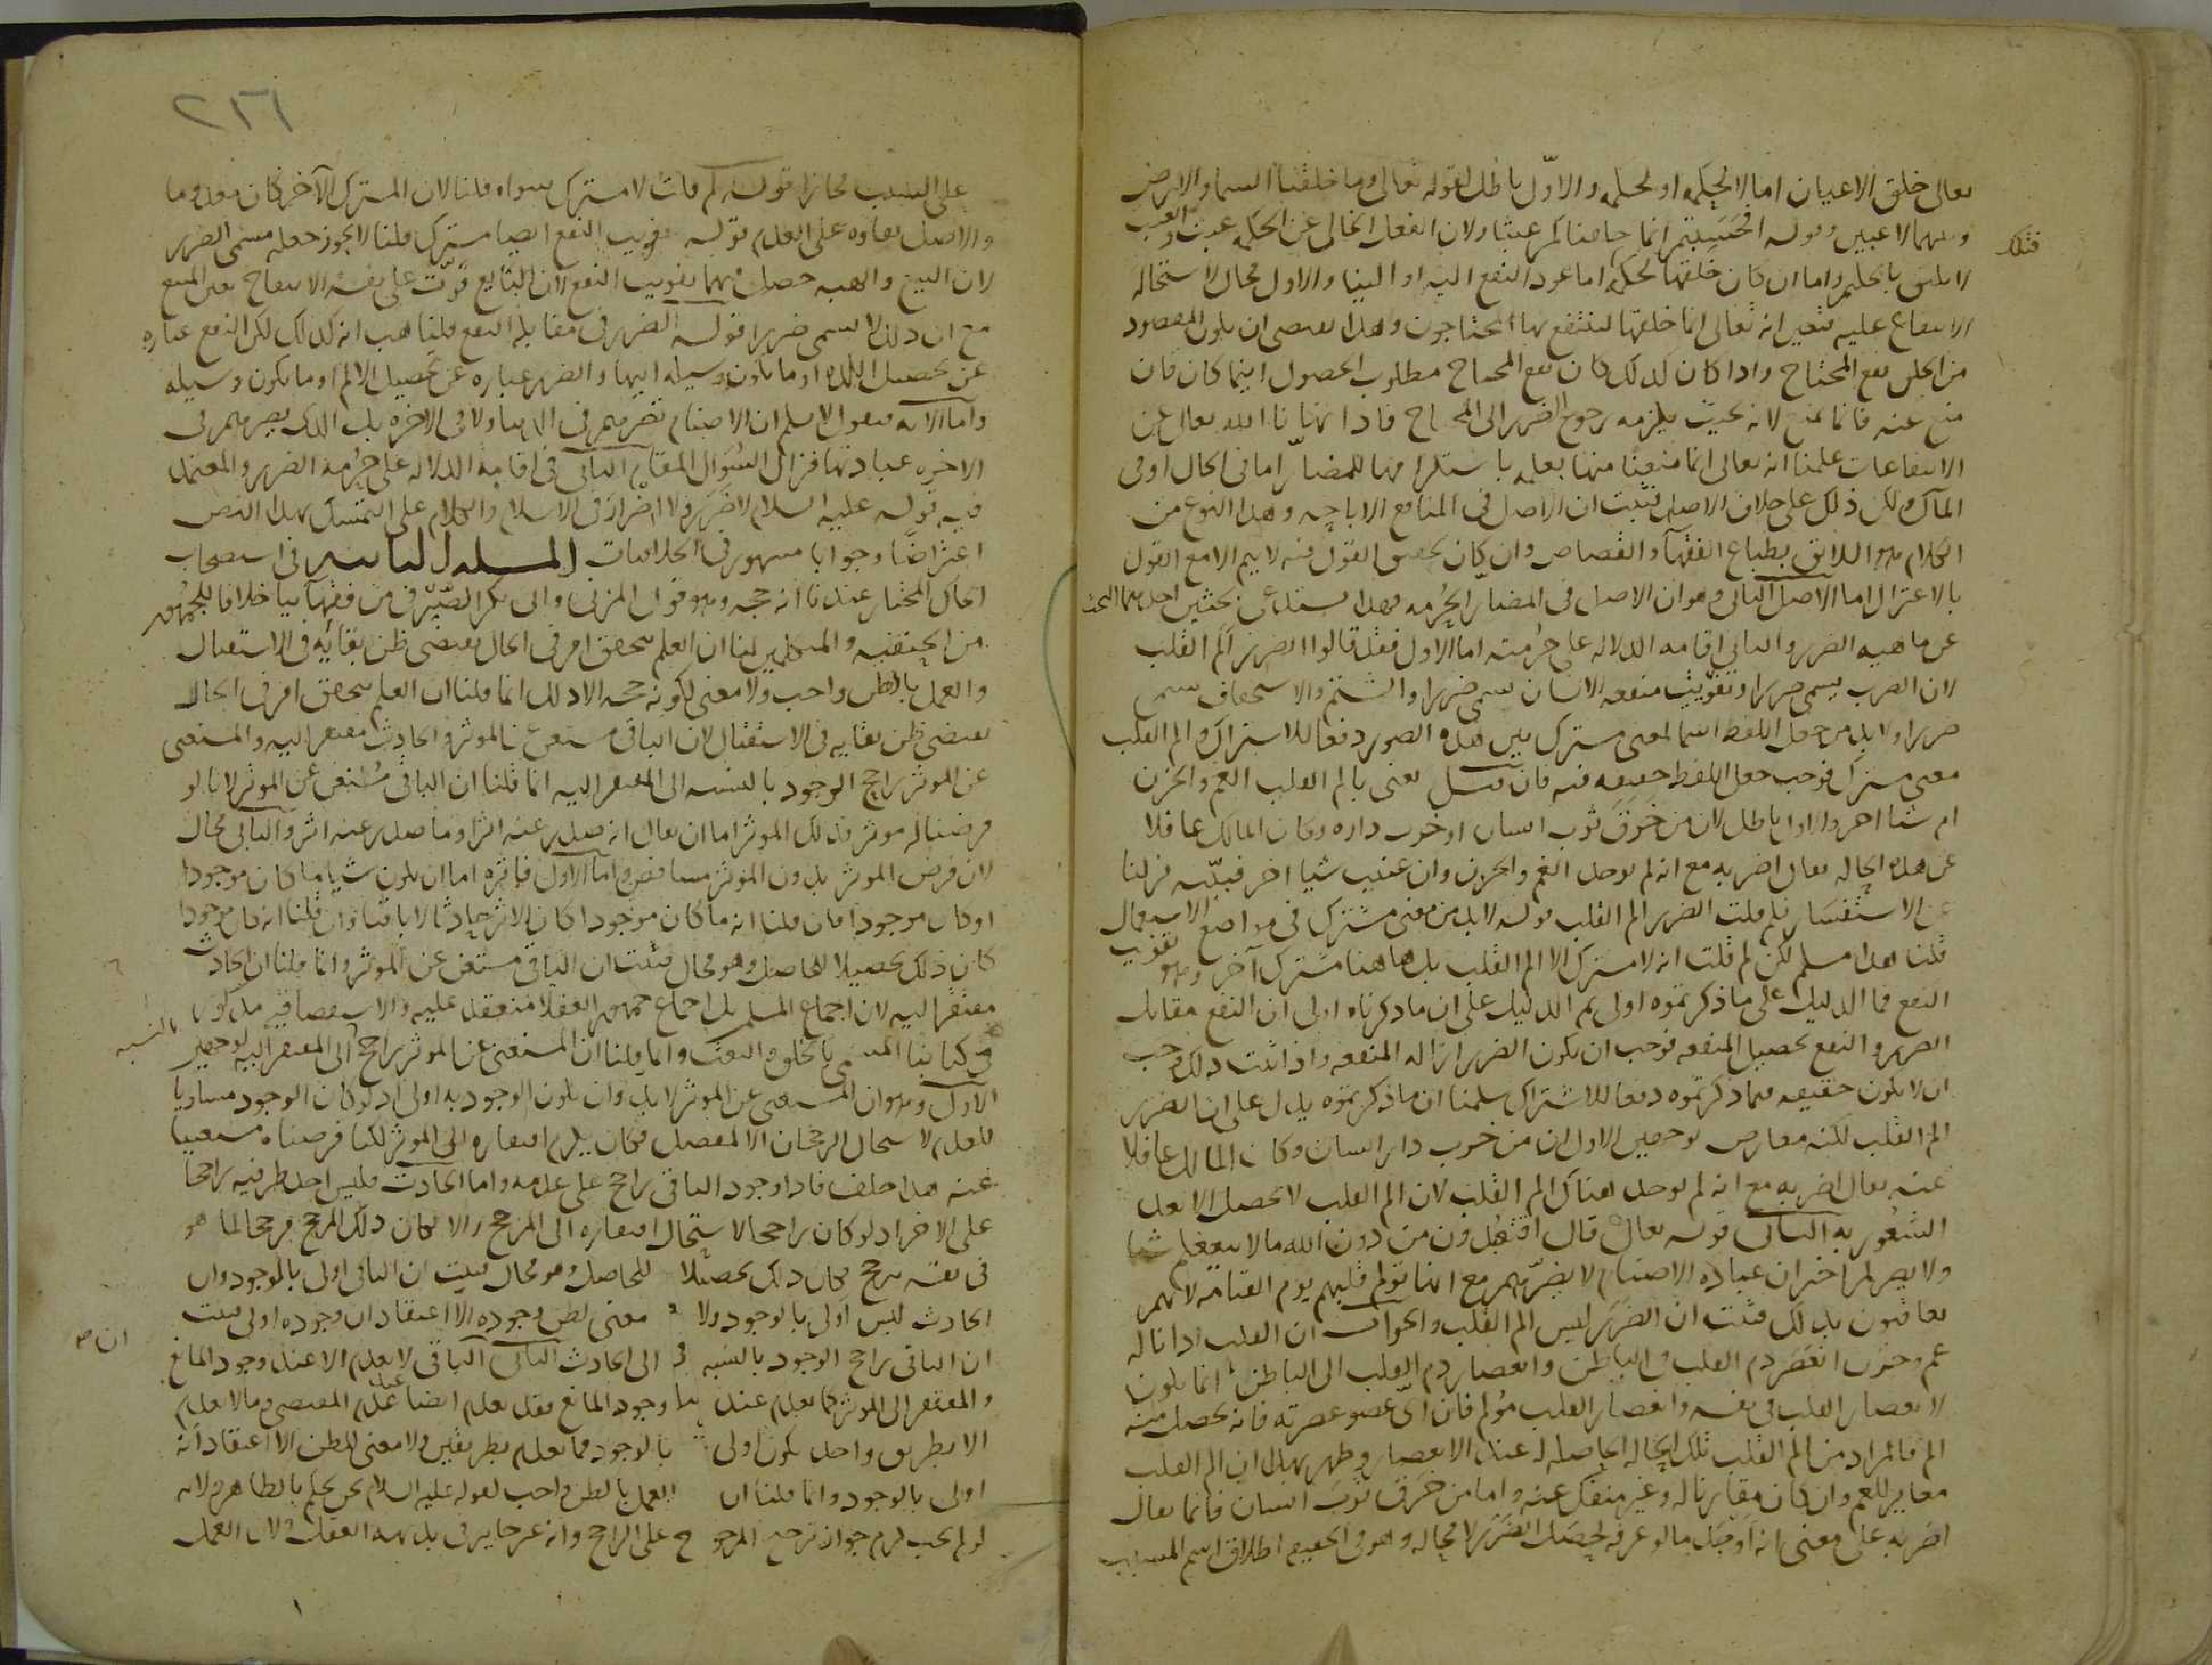 تعالى خلق الاعيان اما لا لحكمه او لحكمه والاول باطل لقوله تعالى وما خلقنا السما والارض
وما بينهما لاعبين وقوله افحسبتم انما خلقناكم عبثا ولان الفعل الخالى عن الحكمه عبث والعبث
لا يليق بالحكيم واما ان كان خلقها لحكمه اما عود النفع اليه او الينا والاول محال لاستحاله
الانتفاع عليه فتعين انه تعالى انما خلقها لينتفع بها المحتاجون وهذا يقتضى ان يكون المقصود
من الخلق نفع المحتاج واذا كان كذلك كان نفع المحتاج مطلوب الحصول اينما كان فان
منع عنه فانما يمنع لانه بحيث يلزمه رجوع الضرر الى المحتاج فاذا نهانا الله تعالى عن
الانتفاعات علمنا انه تعالى انما منعنا منها لعلمه باستلزامها للمضار اما فى الحال او فى
المآل ولكن ذلك على خلاف الاصل فثبت ان الاصل فى المنافع الاباحه وهذا النوع من
الكلام هو اللائق بطباع الفقهآ والقصاص وان كان تحقيق القول فيه لا يتم الا مع القول
بالاعتزال اما الاصل الثانى وهو ان الاصل فى المضار الحرمه فهذا يستدعى بحثين احدهما البحث
عن ماهيه الضرر والثانى اقامه الدلاله على حرمته اما الاول فقد قالوا الضرر الم القلب
لان الضرب يسمى ضررا وتفويت منفعه الانسان يسمى ضررا والشتم والاستخفاف يسمى
ضررا ولا بد من جعل اللفظ اسما لمعنى مشترك بين هذه الصور دفعا للاشتراك والم القلب
معنى مشترك فوجب جعل اللفظ حقيقه فيه فان قيل تعنى بالم القلب الغم والحزن
ام شيا اخر والاول باطل لان من خرق ثوب انسان او خرب داره وكان المالك غافلا
عن هذه الحاله يقال اضر به مع انه لم يوجد الغم والحزن وان عنيت شيا اخر فبينه نزلنا
عن الاستفسار فلم قلت الضرر الم القلب قوله لا بد من معنى مشترك فى مواضع الاستعمال
قلنا هذا مسلم لكن لم قلت انه لا مشترك الا الم القلب بل هاهنا مشترك آخر وهو تفويت
النفع فما الدليل على ما ذكرتموه اولى ثم الدليل على ان ما ذكرناه اولى ان النفع مقابل
الضرر والنفع تحصيل المنفعه فوجب ان يكون الضرر ازاله المنفعه واذا ثبت ذلك وجب
ان لا يكون حقيقه فيما ذكرتموه دفعا للاشتراك سلمنا ان ما ذكرتموه يدل على ان الضرر
الم القلب لكنه معارض بوجهين الاول ان من خرب دار انسان وكان المالك غافلا
عنه يقال اضر به مع انه لم يوجد هناك الم القلب لان الم القلب لا يحصل الا بعد
الشعور به الثانى قوله تعالى قال افتعبدون من دون الله ما لا ينفعكم شيا
ولا يضركم اخبر ان عباده الاصنام لا يضرهم مع انها تؤلم قلبهم يوم القيامه لانهم
يعاقبون بذلك فثبت ان الضرر ليس الم القلب والجواب ان القلب اذا ناله
غم وحزن انعصر دم القلب فى الباطن وانعصار دم القلب الى الباطن انما يكون
لانعصار القلب فى نفسه وانعصار القلب مؤلم فان اى عضو عصرته فانه يحصل منه
الم فالمراد من الم القلب تلك الحاله الحاصله له عند الانعصار وظهر بهذا ان الم القلب
مغاير للغم وان كان مقارنا له وغير منفك عنه واما من خرق ثوب انسان فانما يقال
اضر به على معنى انه اوجد ما لو عرفه لحصل الضرر لا محاله وهو فى الحقيقه اطلاق اسم المسبب
٢٣٦
على السبب مجازا قوله لم قلت لا مشترك سواه قلنا لان المشترك الآخر كان معدوما
والاصل بقاوه على العدم قوله تفويت النفع ايضا مشترك قلنا لا يجوز جعله مسمى الضرر
لان البيع والهبه حصل فيهما تفويت النفع لان البايع فوت على نفسه الانتفاع بعين المبيع
مع ان ذلك لا يسمى ضررا قوله الضرر فى مقابله النفع قلنا هب انه كذلك لكن النفع عباره
عن تحصيل اللذه او ما يكون وسيله اليها والضرر عباره عن تحصيل الالم او ما يكون وسيله
واما الآيه فنقول لا نسلم ان الاصنام تضرهم فى الدنيا ولا فى الاخره بل الذى يضرهم فى
الاخره عبادتها فزال السؤال المقام الثانى فى اقامه الدلاله على حرمه الضرر والمعتمد
فيه قوله عليه السلام لا ضرر ولا اضرار فى الاسلام والكلام على التمسك بهذا النص
اعتراضا وجوابا مشهور فى الخلافيات المسله الثانيه فى استصحاب
الحال المختار عندنا انه حجه وهو قول المزنى وابى بكر الصيرفى من فقهآينا خلافا للجمهور
من الحنفيه والمتكلمين لنا ان العلم بتحقق امر فى الحال يقتضى ظن بقايه فى الاستقبال
والعمل بالظن واجب ولا معنى لكونه حجه الا ذلك انما قلنا ان العلم بتحقق امر فى الحال
يقتضى ظن بقايه فى الاستقبال لان الباقى مستغن عن الموثر والحادث مفتقر اليه والمستغنى
عن الموثر راجح الوجود بالنسبه الى المفتقر اليه انما قلنا ان الباقى مستغن عن الموثر لانا لو
فرضنا له موثر فذلك الموثر اما ان يقال انه صدر عنه اثر او ما صدر عنه اثر والثانى محال
لان فرض الموثر بدون الموثر متناقض واما الاول فاثره اما ان يكون شيا ما كان موجودا
او كان موجودا فان قلنا انه ما كان موجودا كان الاثر حادثا لا باقيا وان قلنا انه كان موجودا
كان ذلك تحصيلا للحاصل وهو محال فثبت ان الباقى مستغن عن الموثر وانما قلنا ان الحادث
مفتقر اليه لان اجماع المسلمين بل اجماع جمهور العقلا منعقد عليه والاستقصا فيه مذكور
فى كتابنا المسمى بالخلق والبعث وانما قلنا ان المستغنى عن الموثر راجح بالنسبه الى المفتقر اليه لوجهين
الاول وهو ان المستغنى عن الموثر لا بد وان يكون الوجود به اولى اذ لو كان الوجود مساويا
للعدم لاستحال الرجحان الا لمنفصل فكان يلزم افتقاره الى الموثر لكنا فرضناه مستغنيا
عنه هذا خلف فاذا وجود الباقى راجح على عدمه واما الحادث فليس احد طرفيه راجحا
على الاخر اذ لو كان راجحا لاستحال افتقاره الى المرجح والا لكان ذلك المرجح مرجحا لما هو
فى نفسه مرجح فكان ذلك تحصيلا للحاصل وهو محال فثبت ان الباقى اولى بالوجود وان
الحادث ليس اولى بالوجود ولا معنى لظن وجوده الا اعتقاد ان وجوده اولى فثبت
ان الباقى راجح الوجود بالنسبه الى الحادث الثانى الباقى لا يعدم الا عند وجود المانع
والمفتقر الى الموثر كما يعدم عند وجود المانع فقد يعدم ايضا عند عدم المقتضى وما لا يعدم
الا بطريق واحد يكون اولى بالوجود مما يعدم بطريقين ولا معنى للظن الا اعتقاد انه
اولى بالوجود وانما قلنا ان العمل بالظن واجب لقوله عليه السلام نحن نحكم بالظاهر ولانه
لو لم يجب لزم جواز ترجيح المرجوح على الراجح وانه غير جايز فى بديهه العقل ولان العمل